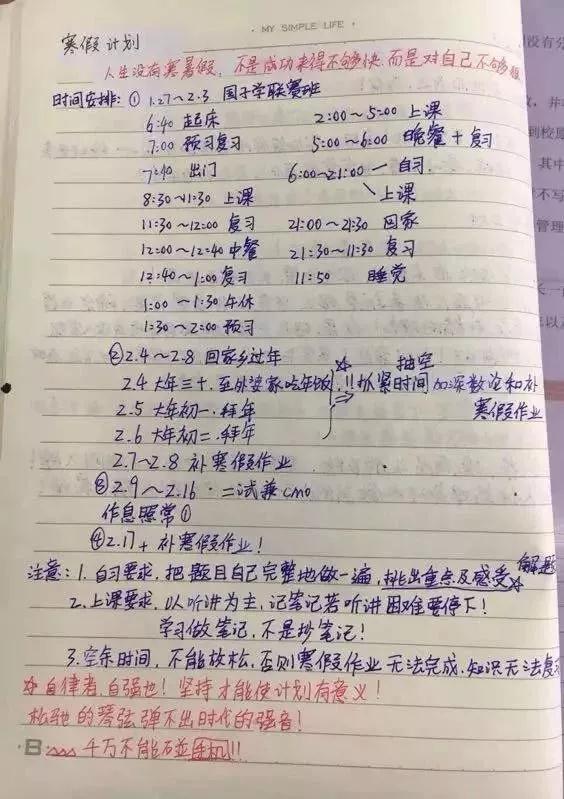 MY SIMPLE LIFE
寒假计划
人生没有寒暑假，不是成功来得不够快而是对自己不够狠
时间安排：① 1.27～2.3 国子学联赛班
6:40 起床 2:00～5:00 上课
7:00 预习复习 5:00～6:00 晚餐+复习
7:40 出门 6:00～21:00 自习
上课
8:30～11:30 上课
11:30～12:00 复习 21:00～21:30 回家
12:00～12:40 中餐 21:30～11:30 复习
12:40～1:00 复习 11:50 睡觉
1:00～1:30 午休
1:30～2:00 预习
② 2.4～2.8 回家乡过年
2.4 大年三十，至外婆家吃年饭
2.5 大年初一，拜年
2.6 大年初二，拜年
抽空
!!抓紧时间加深数论和补
寒假作业
2.7～2.8 补寒假作业
③ 2.9～2.16 二试兼cmo
作息照常①
④ 2.17+ 补寒假作业！
注意：1. 自习要求，把题目自己完整地做一遍，挑出重点及感受 解题
2. 上课要求，以听讲为主，记笔记若听讲困难要停下！
学习做笔记，不是抄笔记！
3. 空余时间，不能放松，否则寒假作业无法完成，知识无法复
自律者，自强也！坚持才能使计划有意义！
松弛的琴弦弹不出时代的强音！
B 千万不能碰手机!!